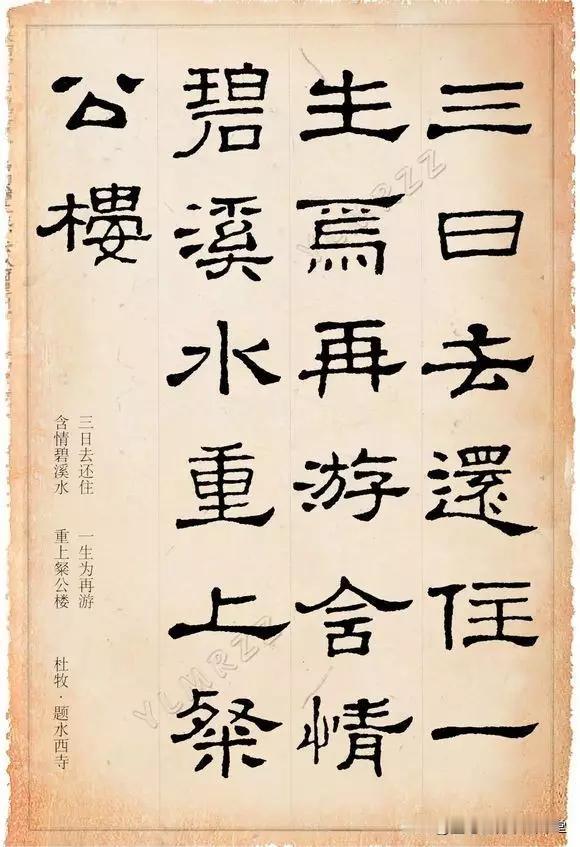 三日去還住一
生爲再游含情
碧溪水重上粲
公樓
三日去还住 一生为再游
含情碧溪水 重上粲公楼
杜牧·题水西寺
YLMRZZ
YLMRZZ